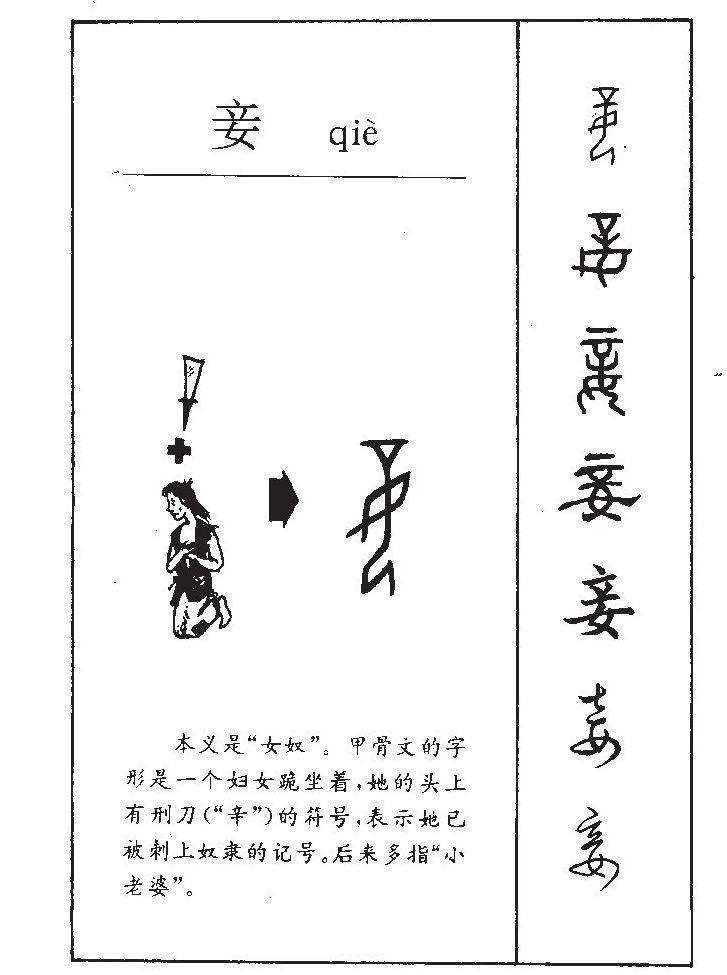 妾 qiè
本义是“女奴”。甲骨文的字
形是一个妇女跪坐着,她的头上
有刑刀(“辛”)的符号,表示她已
被刺上奴隶的记号。后来多指“小
老婆”。
妾
妾
妾
妾
妾
妾
妾